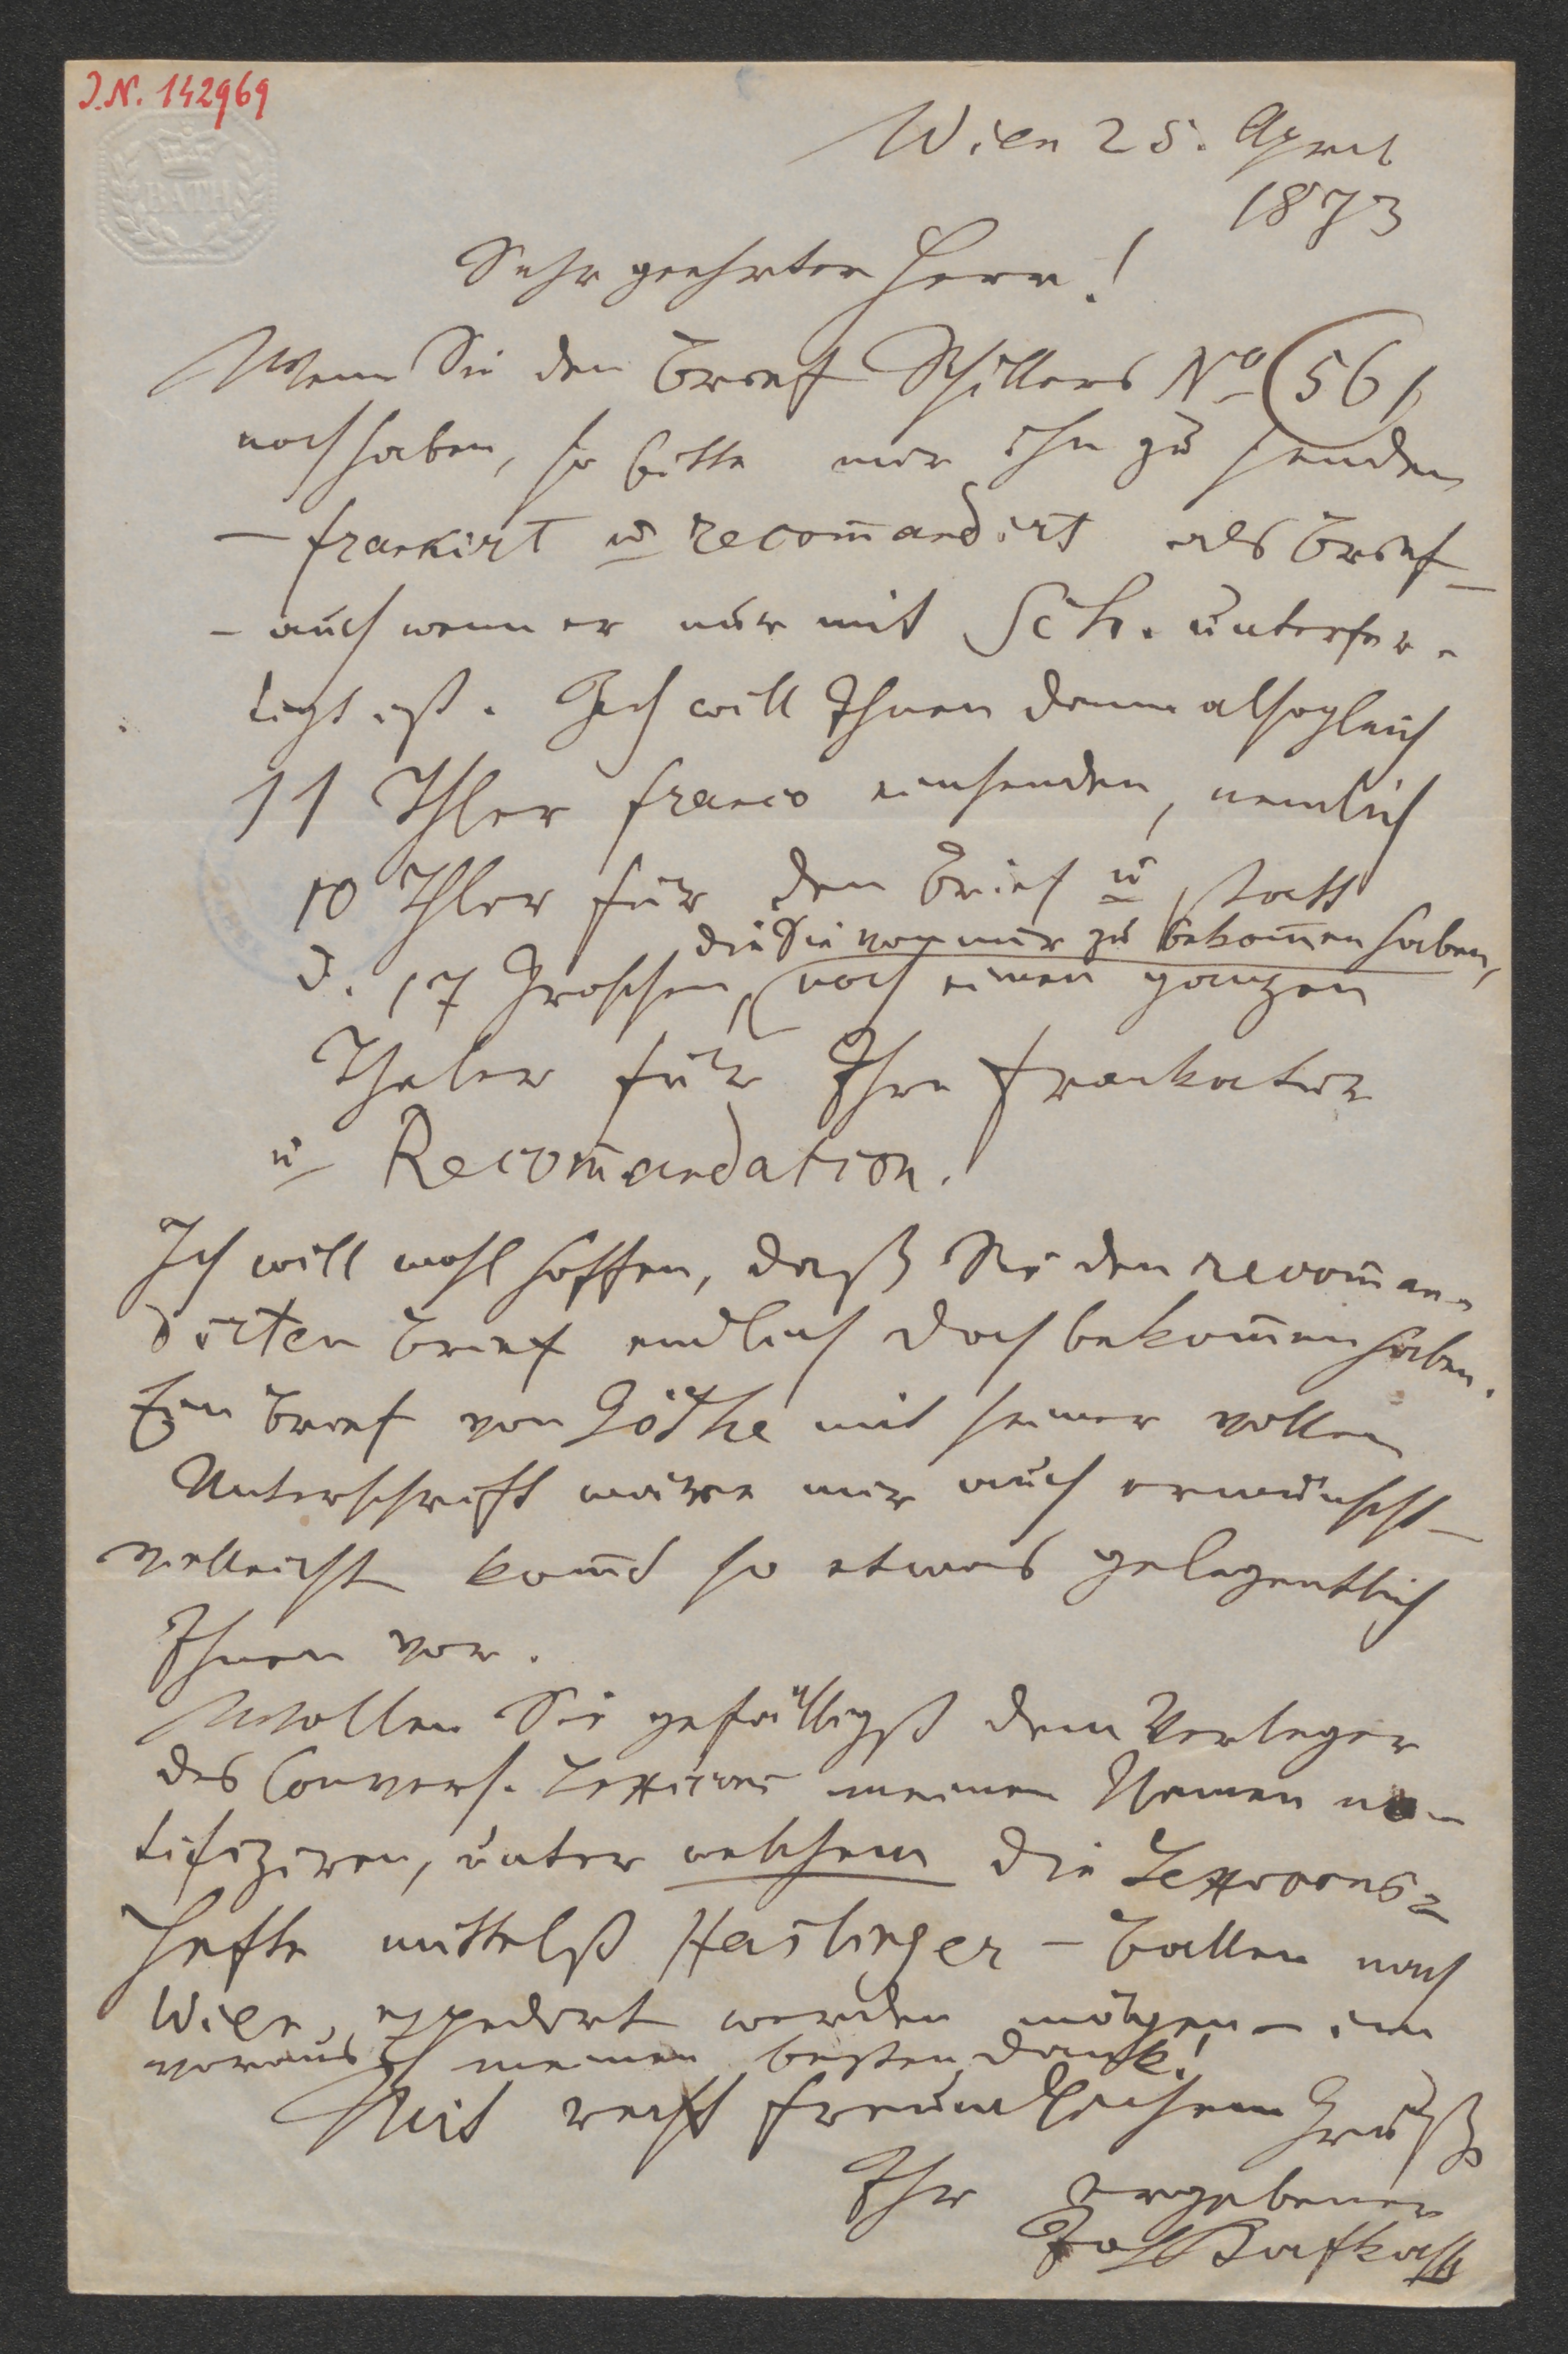 I.N. 142969
BATH
Wien 25. April
1873
Sehr geehrter Herr!
Wenn Sie den Brief Schillers No 561
noch haben, so bitte mir ihn zu senden
– frankirt u recom̄andirt als Brief –
– auch wenn er nur mit Sch. unterfer-
tigt ist. Ich will Ihnen dann alsogleich
11 Thler franco einsenden, nemlich
10 Thler für den Brief u statt
die Sie von mir zu bekom̄en haben,
d. 17 Groschen, noch einen ganzen
Thaler für Ihre Frankatur
u Recom̄andation.
Ich will wohl hoffen, daß Sie den recom̄an-
dirten Brief endlich doch bekom̄en haben.
Ein Brief von Göthe mit seiner vollen
Unterschrift wäre mir auch erwünscht –
vielleicht kom̄t so etwas gelegentlich
Ihnen vor.
Wollen Sie gefälligst dem Verleger
des Convers. Lexicons meinen Namen no-
tifiziren, unter welchem die Lexicons-
Hefte mittelst Haslinger – Ballen nach
Wien expedirt werden mögen – im
voraus meinen besten Dank!
Mit recht freundlichem Gruß
Ihr ergebener
Joh Kafka